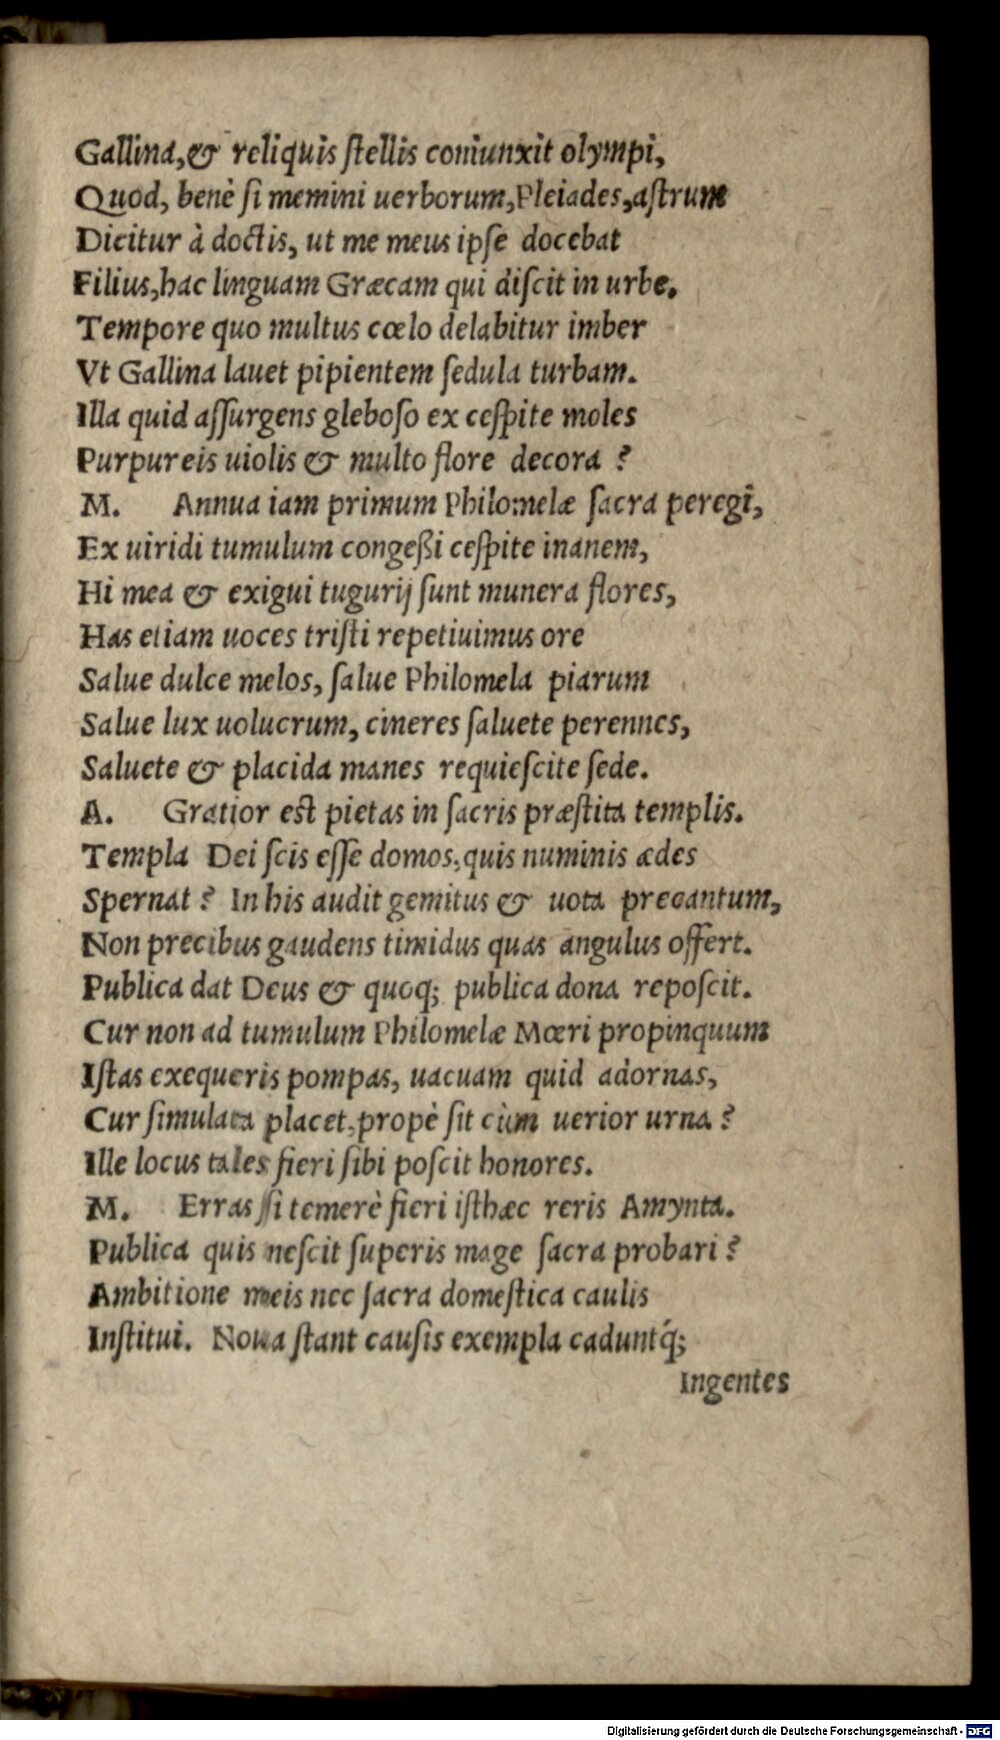 Gallina, & reliquis ſtellis coniunxit olympi,
Quod, benè ſi memini uerborum, Pleiades, aſtrum
Dicitur à doctis, ut me meus ipſe docebat
Filius, hac linguam Græcam qui diſcit in urbe.
Tempore quo multus cœlo delabitur imber
Vt Gallina lauet pipientem ſedula turbam.
Illa quid aſſurgens gleboſo ex ceſpite moles
Purpureis uiolis & multo flore decora ?
M. Annua iam primum Philomelæ ſacra peregi,
Ex uiridi tumulum congeßi ceſpite inanem,
Hi mea & exigui tugurij ſunt munera flores,
Has etiam uoces triſti repetiuimus ore
Salue dulce melos, ſalue Philomela piarum
Salue lux uolucrum, cineres ſaluete perennes,
Saluete & placida manes requieſcite ſede.
A. Gratior eſt pietas in ſacris præſtita templis.
Templa Dei ſcis eſſe domos, quis numinis ædes
Spernat ? In his audit gemitus & uota precantum,
Non precibus gaudens timidus quas angulus offert.
Publica dat Deus & quoq; publica dona repoſcit.
Cur non ad tumulum Philomelæ Mœri propinquum
Iſtas exequeris pompas, uacuam quid adornas,
Cur ſimulata placet, propè ſit cùm uerior urna ?
Ille locus tales fieri ſibi poſcit honores.
M. Erras ſi temerè fieri iſthæc reris Amynta.
Publica quis neſcit ſuperis mage ſacra probari ?
Ambitione meis nec ſacra domeſtica caulis
Inſtitui. Noua ſtant cauſis exempla caduntq́;
Ingentes
Digitalisierung gefördert durch die Deutsche Forschungsgemeinschaft - DFG